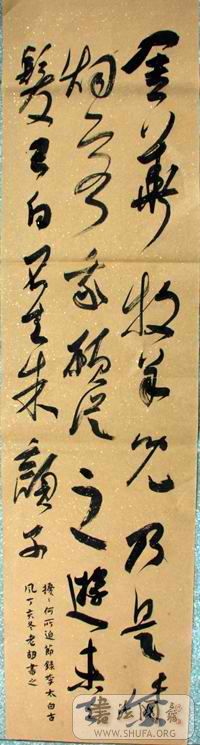 金華牧羊兒乃是紫
烟客我願從之遊未去
髮已白不知朱顏子
擾々何所迫節錄李太白古
風丁亥冬老胡書之
WWW.SHUFA.ORG